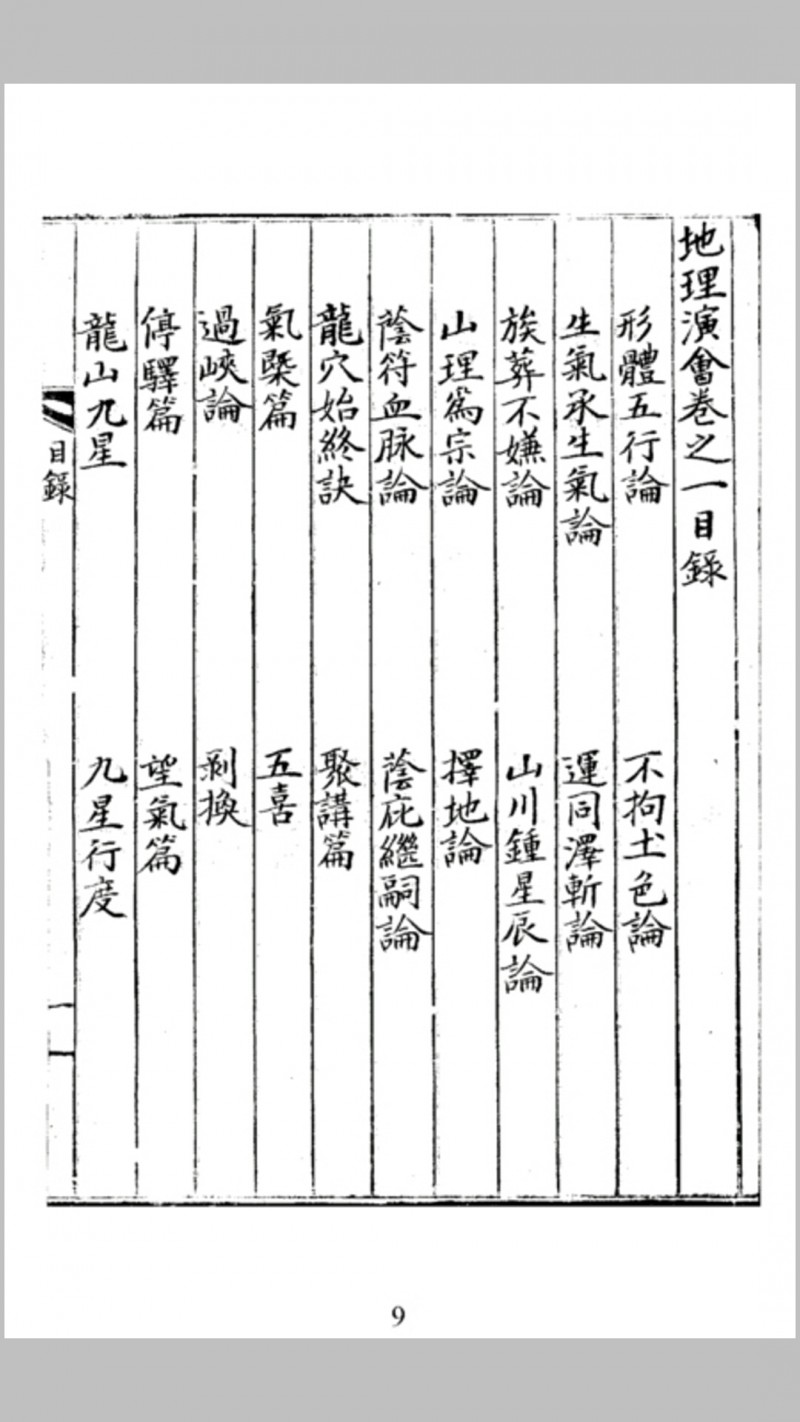 地理演會卷之一目錄
形體五行論 不拘土色論
生氣承生氣論 運同澤斬論
族葬不嫌論 山川鍾星辰論
山理爲宗論 擇地論
蔭符血脉論 蔭庇繼嗣論
龍穴始終訣 聚講篇
氣槩篇 五喜
過峽論 剥換
停驛篇 望氣篇
龍山九星 九星行度
目錄
一
9